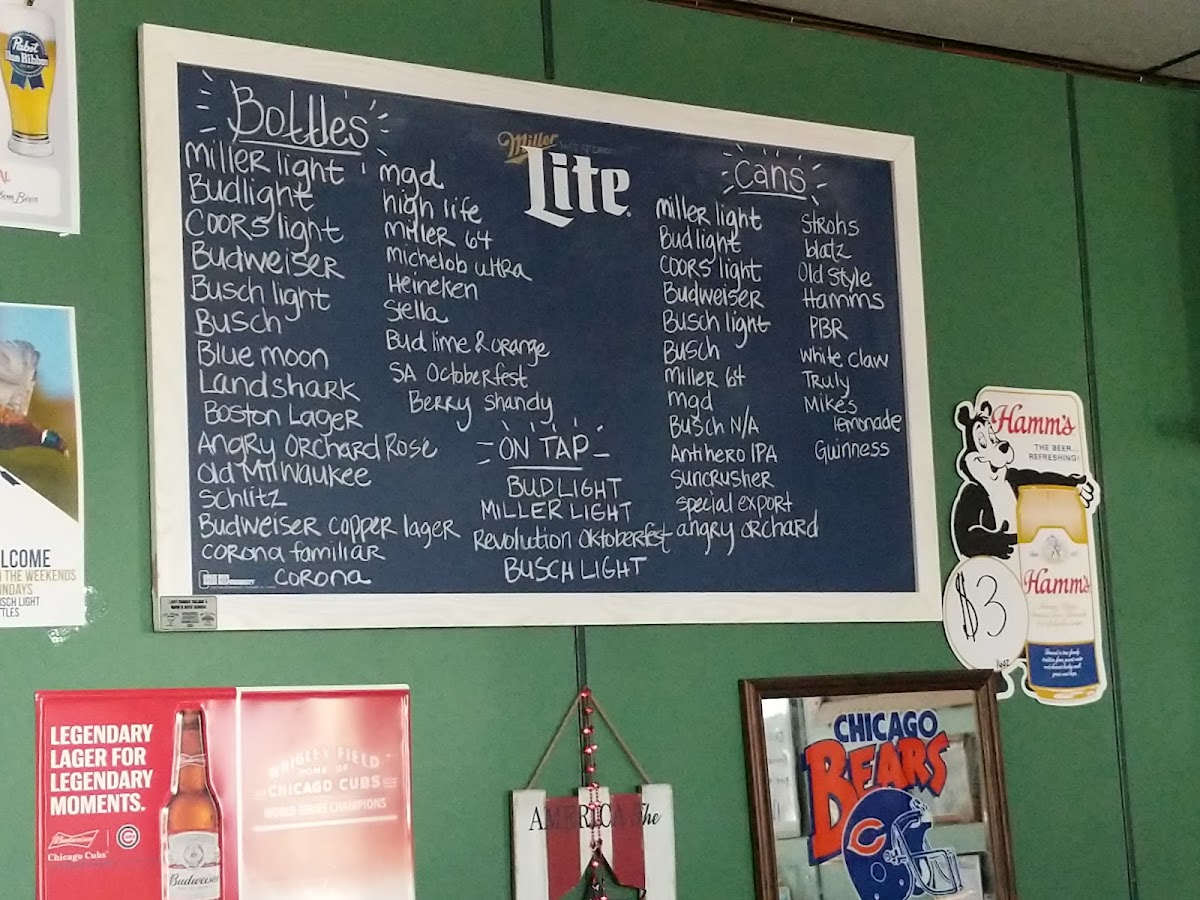 Pabst
Blue Ribbon
Bottles
miller light
Budlight
COORS light
Budweiser
Busch light
Busch
Blue moon
Landshark
Boston Lager
Angry Orchard Rose
Old Milwaukee
Schlitz
Budweiser copper lager
corona familiar
corona
mgd
high life
miller 64
michelob ultra
Heineken
Stella
Bud lime & orange
SA Octoberfest
Berry Shandy
Miller
Lite
ON TAP
BUD LIGHT
MILLER LIGHT
Revolution Oktoberfest
BUSCH LIGHT
Cans
miller light
Bud light
COORS light
Budweiser
Busch light
Busch
miller 64
mgd
Busch N/A
Antihero IPA
suncrusher
special export
angry orchard
Strohs
blatz
Old Style
Hamms
PBR
white claw
Truly
Mikes
lemonade
Guinness
Hamm's
THE BEER...
REFRESHING!
Hamm's
$3
16oz
LEGENDARY
LAGER FOR
LEGENDARY
MOMENTS.
Budweiser
Chicago Cubs
Budweiser
WRIGLEY FIELD
HOME OF
CHICAGO CUBS
WORLD SERIES CHAMPIONS
AMERICA the
CHICAGO
BEARS
C